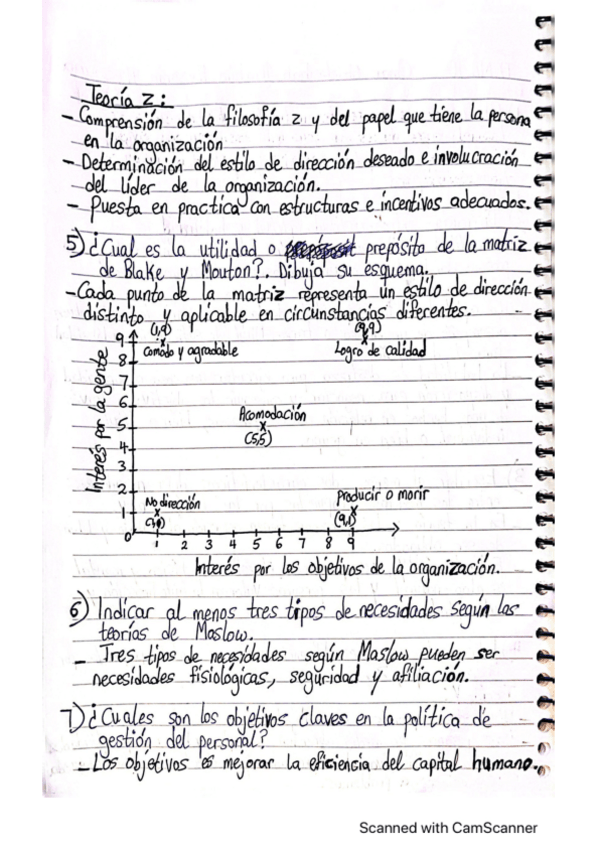 Teoría Z:
- Comprensión de la filosofía z y del papel que tiene la persona
en la organización
- Determinación del estilo de dirección deseado e involucración
del líder de la organización.
- Puesta en practica con estructuras e incentivos adecuados.
5) ¿Cual es la utilidad o prepósito de la matriz
de Blake y Mouton?. Dibuja su esquema.
- Cada punto de la matriz representa un estilo de dirección
distinto y aplicable en circunstancias diferentes.
(1,9) (9,9)
Comodo y agradable Logro de calidad
Interés por la gente
9
8
7
6
5
4
3
2
1
0
Acomodación
(5,5)
No dirección Producir o morir
(9,1)
1 2 3 4 5 6 7 8 9
Interés por los objetivos de la organización.
6) Indicar al menos tres tipos de necesidades según las
teorías de Maslow.
- Tres tipos de necesidades según Maslow pueden ser
necesidades fisiológicas, seguridad y afiliación.
7) ¿Cuales son los objetivos claves en la política de
gestión del personal?
- Los objetivos es mejorar la eficiencia del capital humano.
Scanned with CamScanner